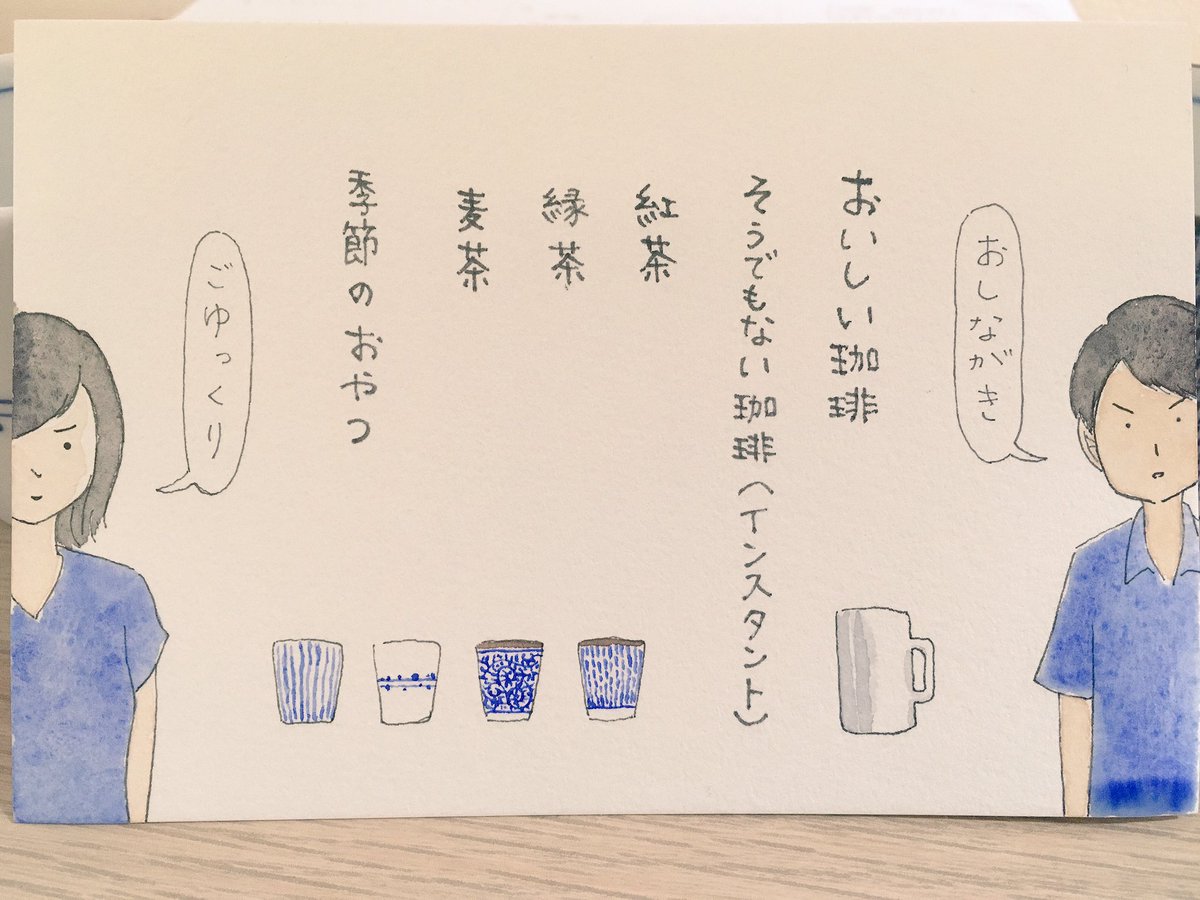 おしながき
おいしい珈琲
そうでもない珈琲(インスタント)
紅茶
縁茶
麦茶
季節のおやつ
ごゆっくり